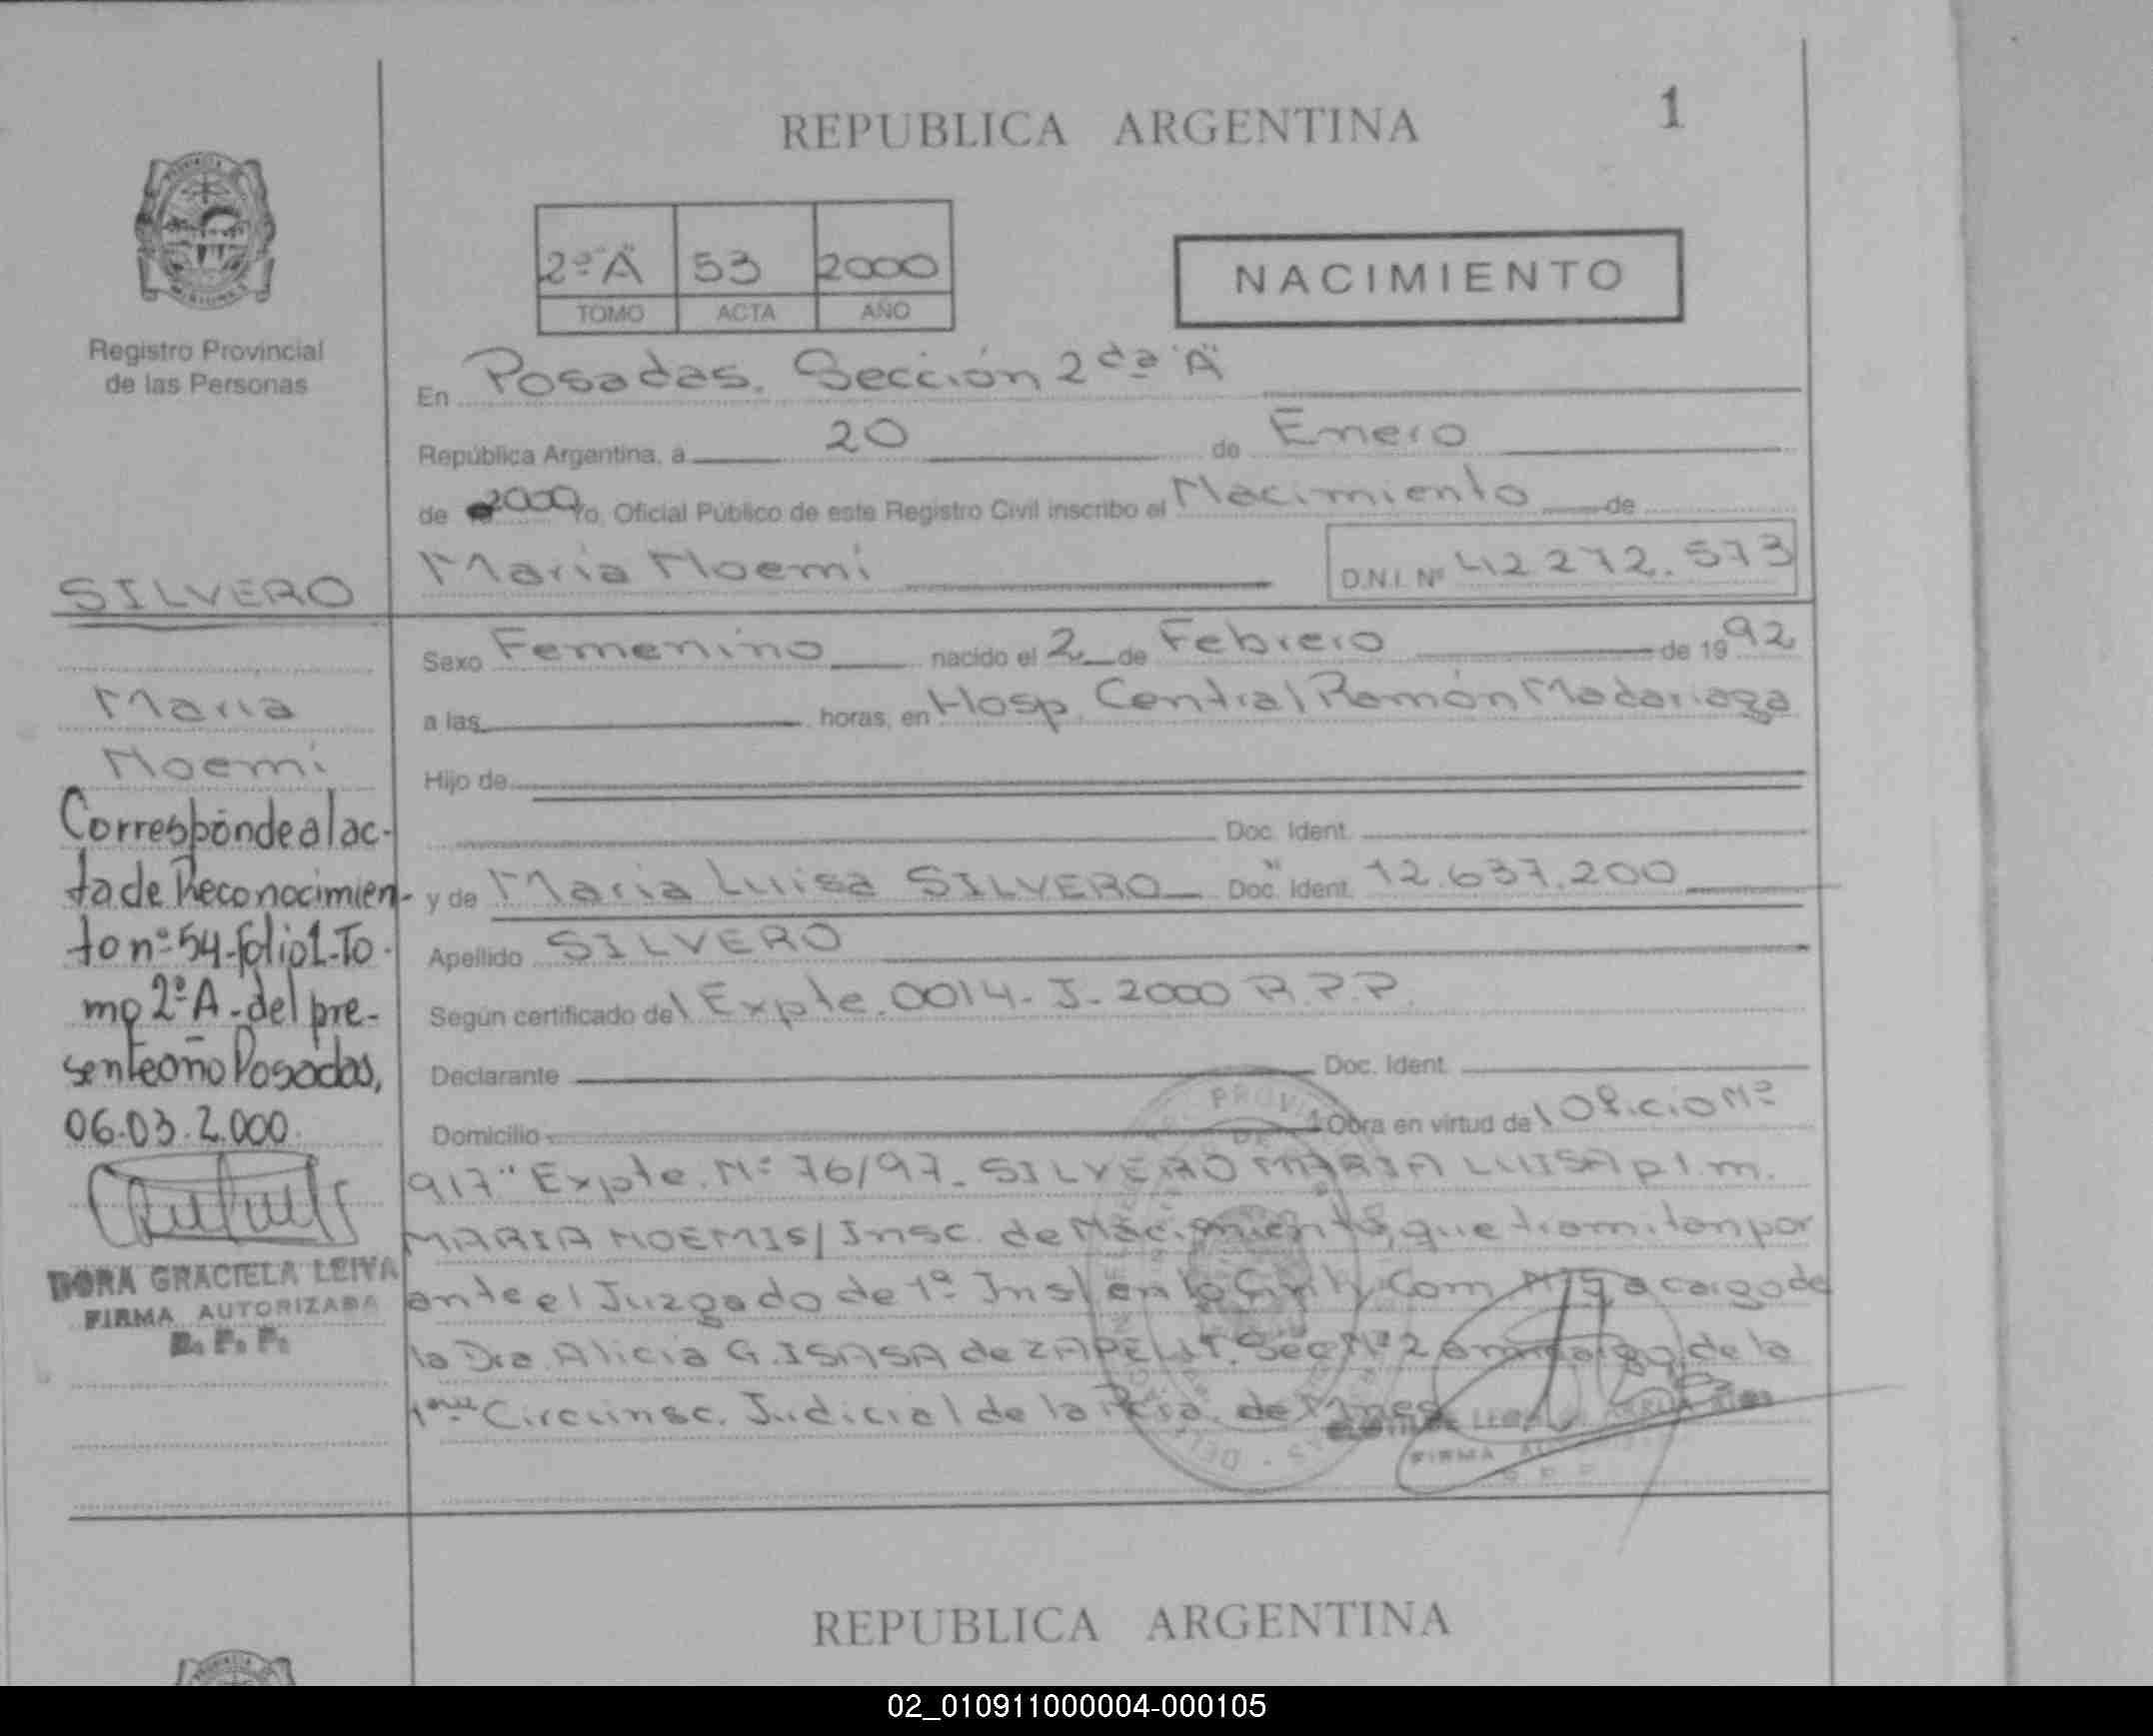 REPUBLICA ARGENTINA
1
2º "A" 53 2000
TOMO ACTA AÑO
NACIMIENTO
Registro Provincial
de las Personas
En Posadas. Sección 2da "A"
República Argentina, a 20 de Enero
de 2000 Yo, Oficial Público de este Registro Civil inscribo el Nacimiento de
Maria Noemi D.N.I. Nº 42 272.573
SILVERO
Maria
Noemi
Corresponde al ac-
ta de Reconocimien-
to nº 54-folio 1-To-
mo 2º A-del pre-
sente año Posadas,
06.03.2.000.
DORA GRACIELA LEIVA
FIRMA AUTORIZADA
R. P. P.
Sexo Femenino nacido el 2 de Febrero de 1992
a las horas, en Hosp. Central Ramón Madariaga
Hijo de
Doc. Ident.
y de Maria Luisa SILVERO Doc. Ident. 12.637.200
Apellido SILVERO
Según certificado del Expte. 0014-J-2000 R.P.P.
Declarante Doc. Ident.
Domicilio Obra en virtud del Oficio Nº
917" Expte. Nº 76/97_ SILVERO MARIA LUISA p.s.m.
MARIA NOEMI S/ Insc. de Nacimiento, que tramitan por
ante el Juzgado de 1º Inst en lo Civil y Com a cargo de
la Dra. Alicia G. ISASA de Sec Nº 2 de la
1era Circunsc. Judicial de la Pcia. de Mnes
FIRMA
REPUBLICA ARGENTINA
02_010911000004-000105